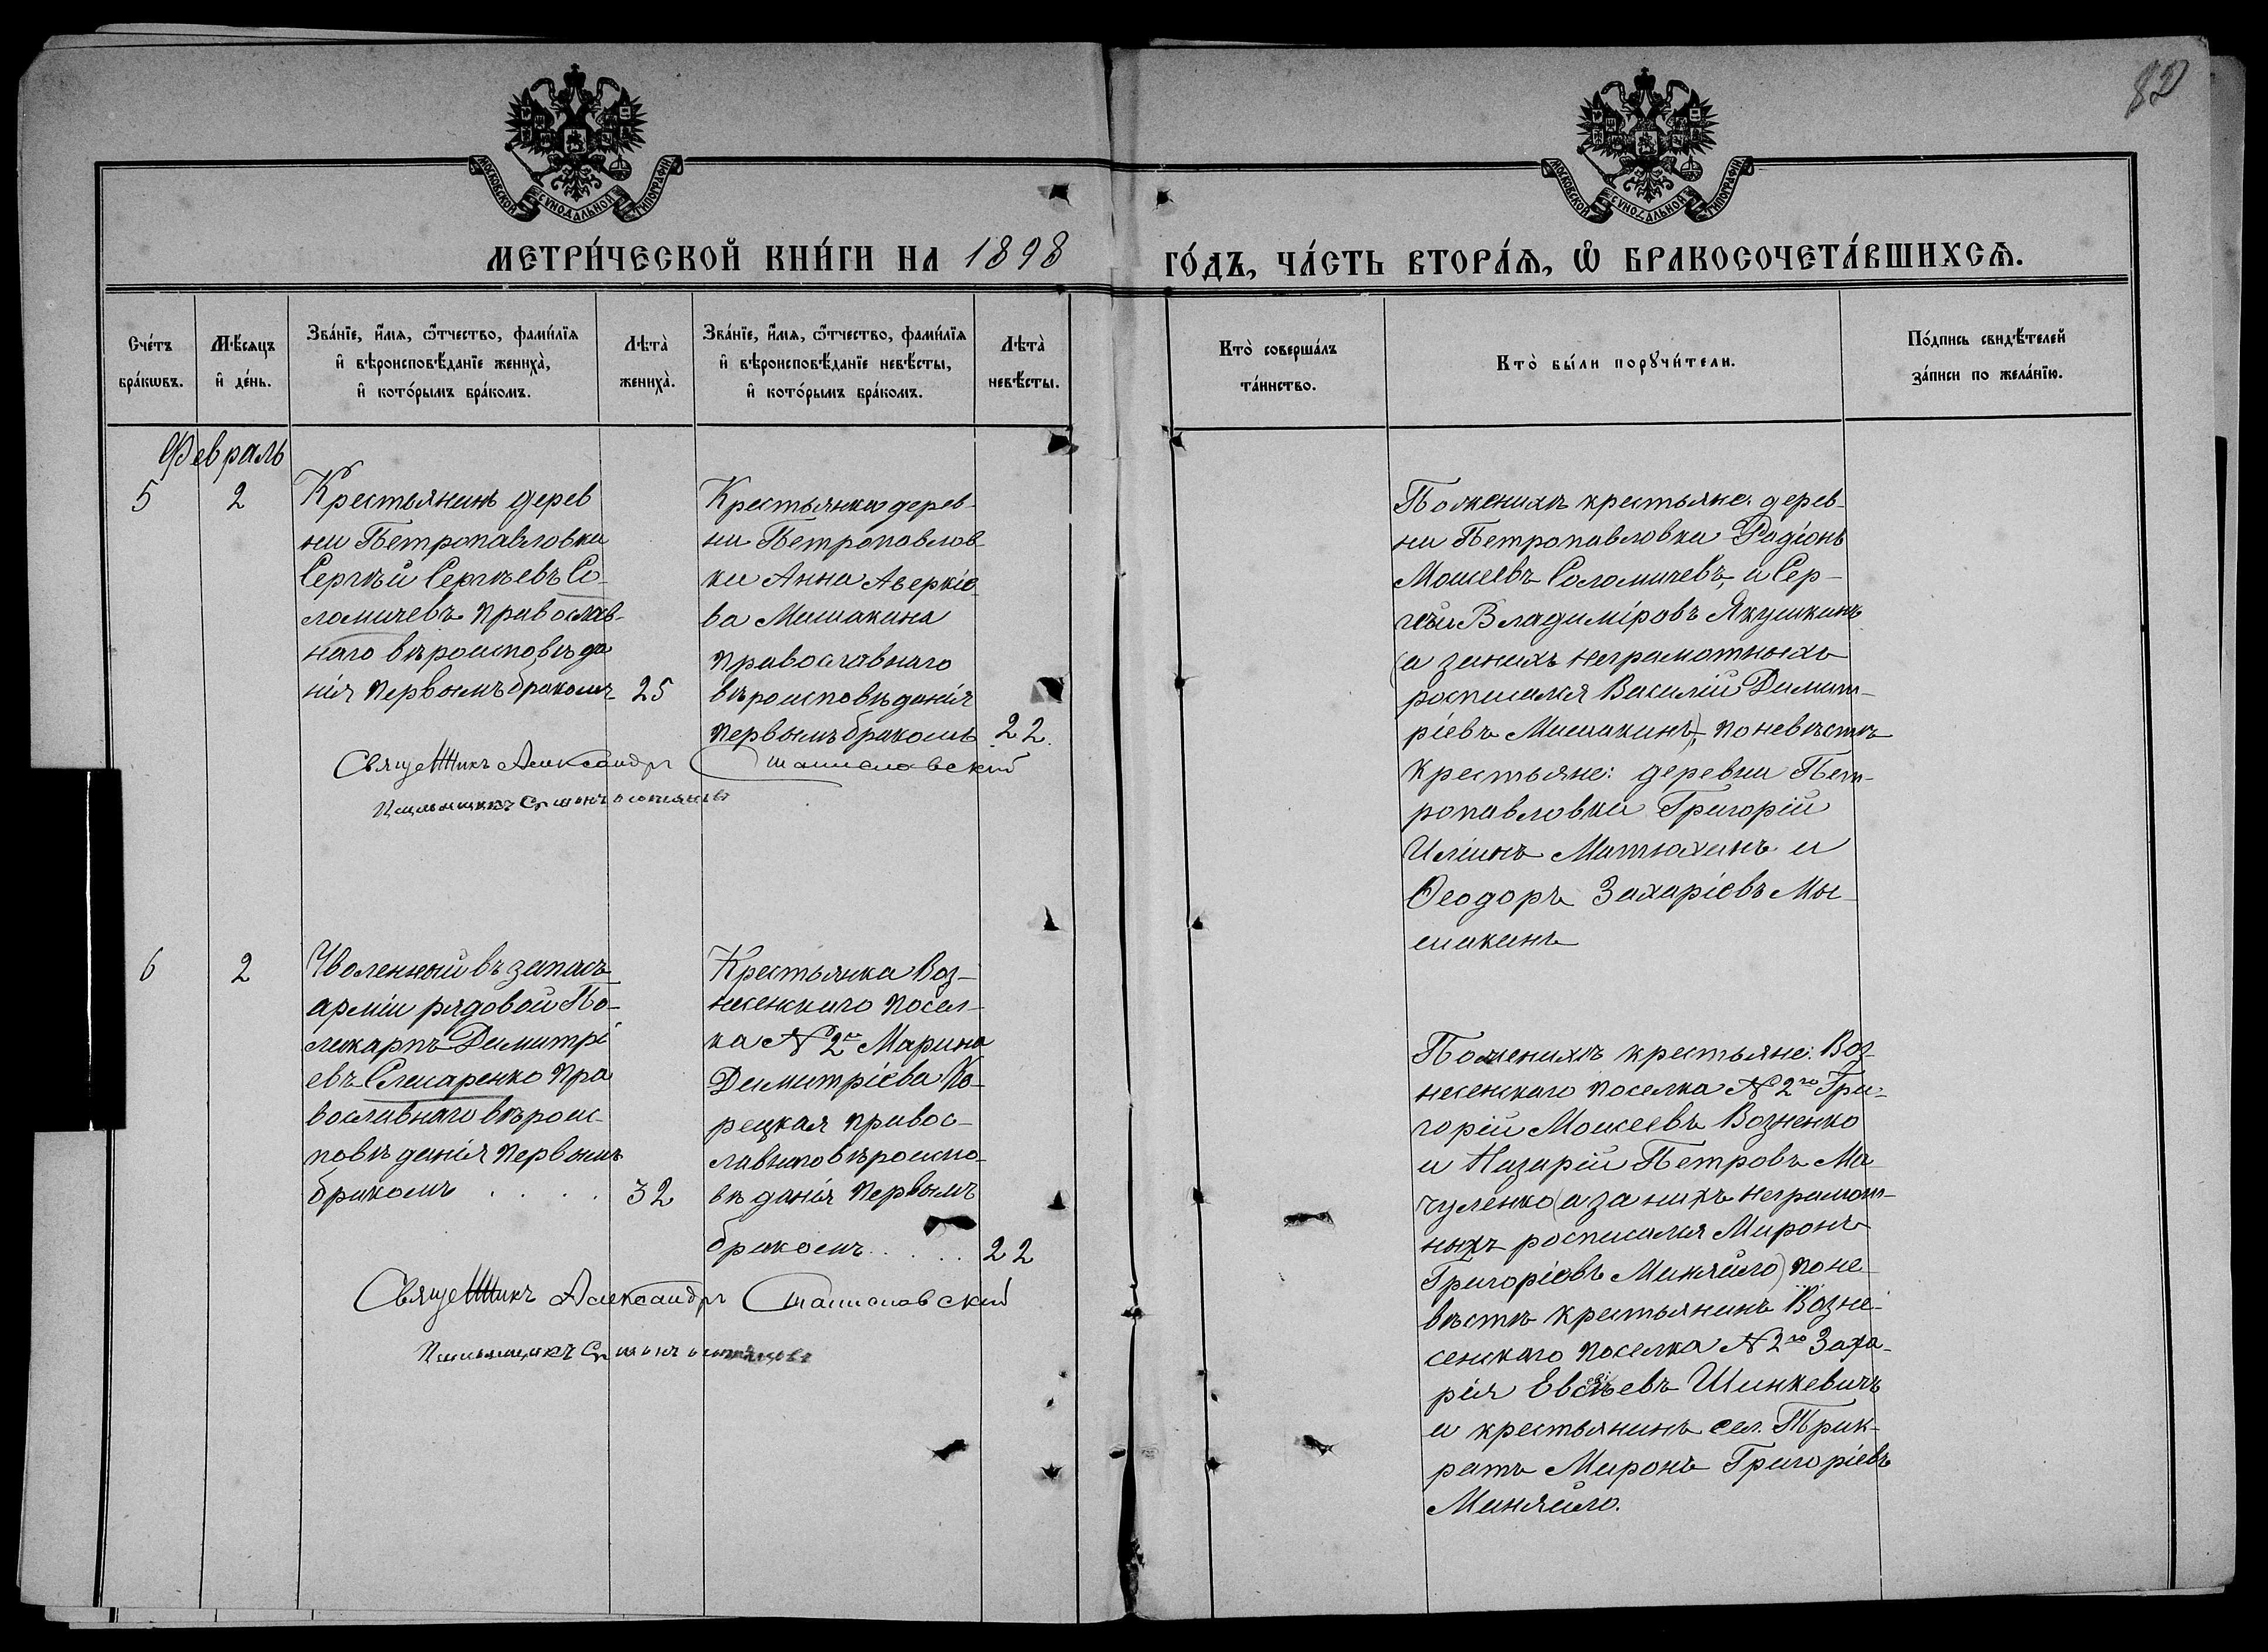 82
МОСКОВСКОЙ СѴНОДАЛЬНОЙ ТИПОГРАФІИ
МОСКОВСКОЙ СѴНОДАЛЬНОЙ ТИПОГРАФІИ
МЕТРИ́ЧЕСКОЙ КНИ́ГИ НА 1898 ГО́ДЪ, ЧА́СТЬ ВТОРА́Ѧ, Ѡ҆ БРАКОСОЧЕТА́ВШИХСѦ.
Сче́тъ
бра́кωвъ.
Мѣ́сяцъ
и҆ де́нь.
Зва́нїе, и҆́мя, ѻ҆́тчество, фами́лїя
и҆ вѣроисповѣ́данїе жениха̀,
и҆ кото́рымъ бра́комъ.
Лѣта̀
жениха̀.
Зва́нїе, и҆́мя, ѻ҆́тчество, фами́лїя
и҆ вѣроисповѣ́данїе невѣ́сты,
и҆ кото́рымъ бра́комъ.
Лѣта̀
невѣ́сты.
Кто̀ соверша́лъ
та́инство.
Кто̀ бы́ли порꙋчи́тели.
По́дпись свидѣ́телей
за́писи по жела́нїю.
Февраль
5
2
Крестьянинъ дерев
ни Петропавловки
Сергѣй Сергѣевъ Со-
ломичевъ православ-
наго вѣроисповѣда
нія первымъ бракомъ
25
Крестьянка дерев-
ни Петропавлов-
ки Анна Аверкіе
ва Мишакина
православнаго
вѣроисповѣданія
первымъ бракомъ
22.
Священникъ Александръ Станиславский
Псаломщикъ
По женихѣ крестьяне: дерев-
ни Петропавловки Родіонъ
Моисеевъ Соломичевъ, и Сер-
гѣй Владиміровъ Якушкинъ
(а за нихъ неграмотныхъ
росписался Василій Димит-
ріевъ Мишакинъ), по невѣстѣ
крестьяне: деревни Пет-
ропавловки Григорій
Илiинъ Митюхинъ и
Ѳеодоръ Захаріевъ Ми-
шакинъ
6
2
Уволенный въ запасъ
арміи рядовой По-
ликарпъ Димитрі
евъ Слюсаренко пра
вославнаго вѣроис-
повѣданія первымъ
бракомъ . . . .
32
Крестьянка Воз-
несенскаго посел-
ка № 2го Марина
Димитріева Ко-
рецкая правос-
лавнаго вѣроиспо-
вѣданія первымъ
бракомъ . . . .
22
Священникъ Александръ Станиславский
Псаломщикъ
По женихѣ крестьяне: Воз-
несенскаго поселка № 2го Гри-
горій Моисеевъ Возненко
и Назарій Петровъ Ма-
чуленко (а за нихъ неграмот-
ныхъ росписался Миронъ
Григоріевъ Миняйло) по не-
вѣстѣ крестьянинъ Возне-
сенскаго поселка № 2го Заха-
рія Шинкевичъ
и крестьянинъ сел. Трик-
ратъ Миронъ Григоріевъ
Миняйло.